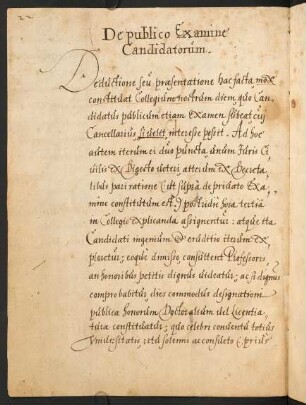 22
De publico Examine
Candidatorum.
Deductione seu præsentatione hac facta mox
constituat Collegium nostrum diem, quo Can-
didatus publicum etiam Examen subeat cui
Cancellarius, si volet, interesse posset. Ad hoc
autem iterum ei duo puncta, unum Juris Ci-
uilis ex Digesto veteri, alterum ex Decreta-
libus pari ratione (ut supra de priuato Exa-
mine constitutum est,) postridie hora tertia
in Collegio explicanda assignentur: atque ita
Candidati ingenium & eruditio iterum ex-
ploretur; eoque dimisso, consultent Professores,
an honoribus petitis dignus videatur; ac si dignus
comprobabitur, dies commodus designationi
publicæ honorum Doctoralium vel Licentia-
turæ constituatur; quo celebri conuentu totius
Vniuersitatis, vtd solemni ac consueto